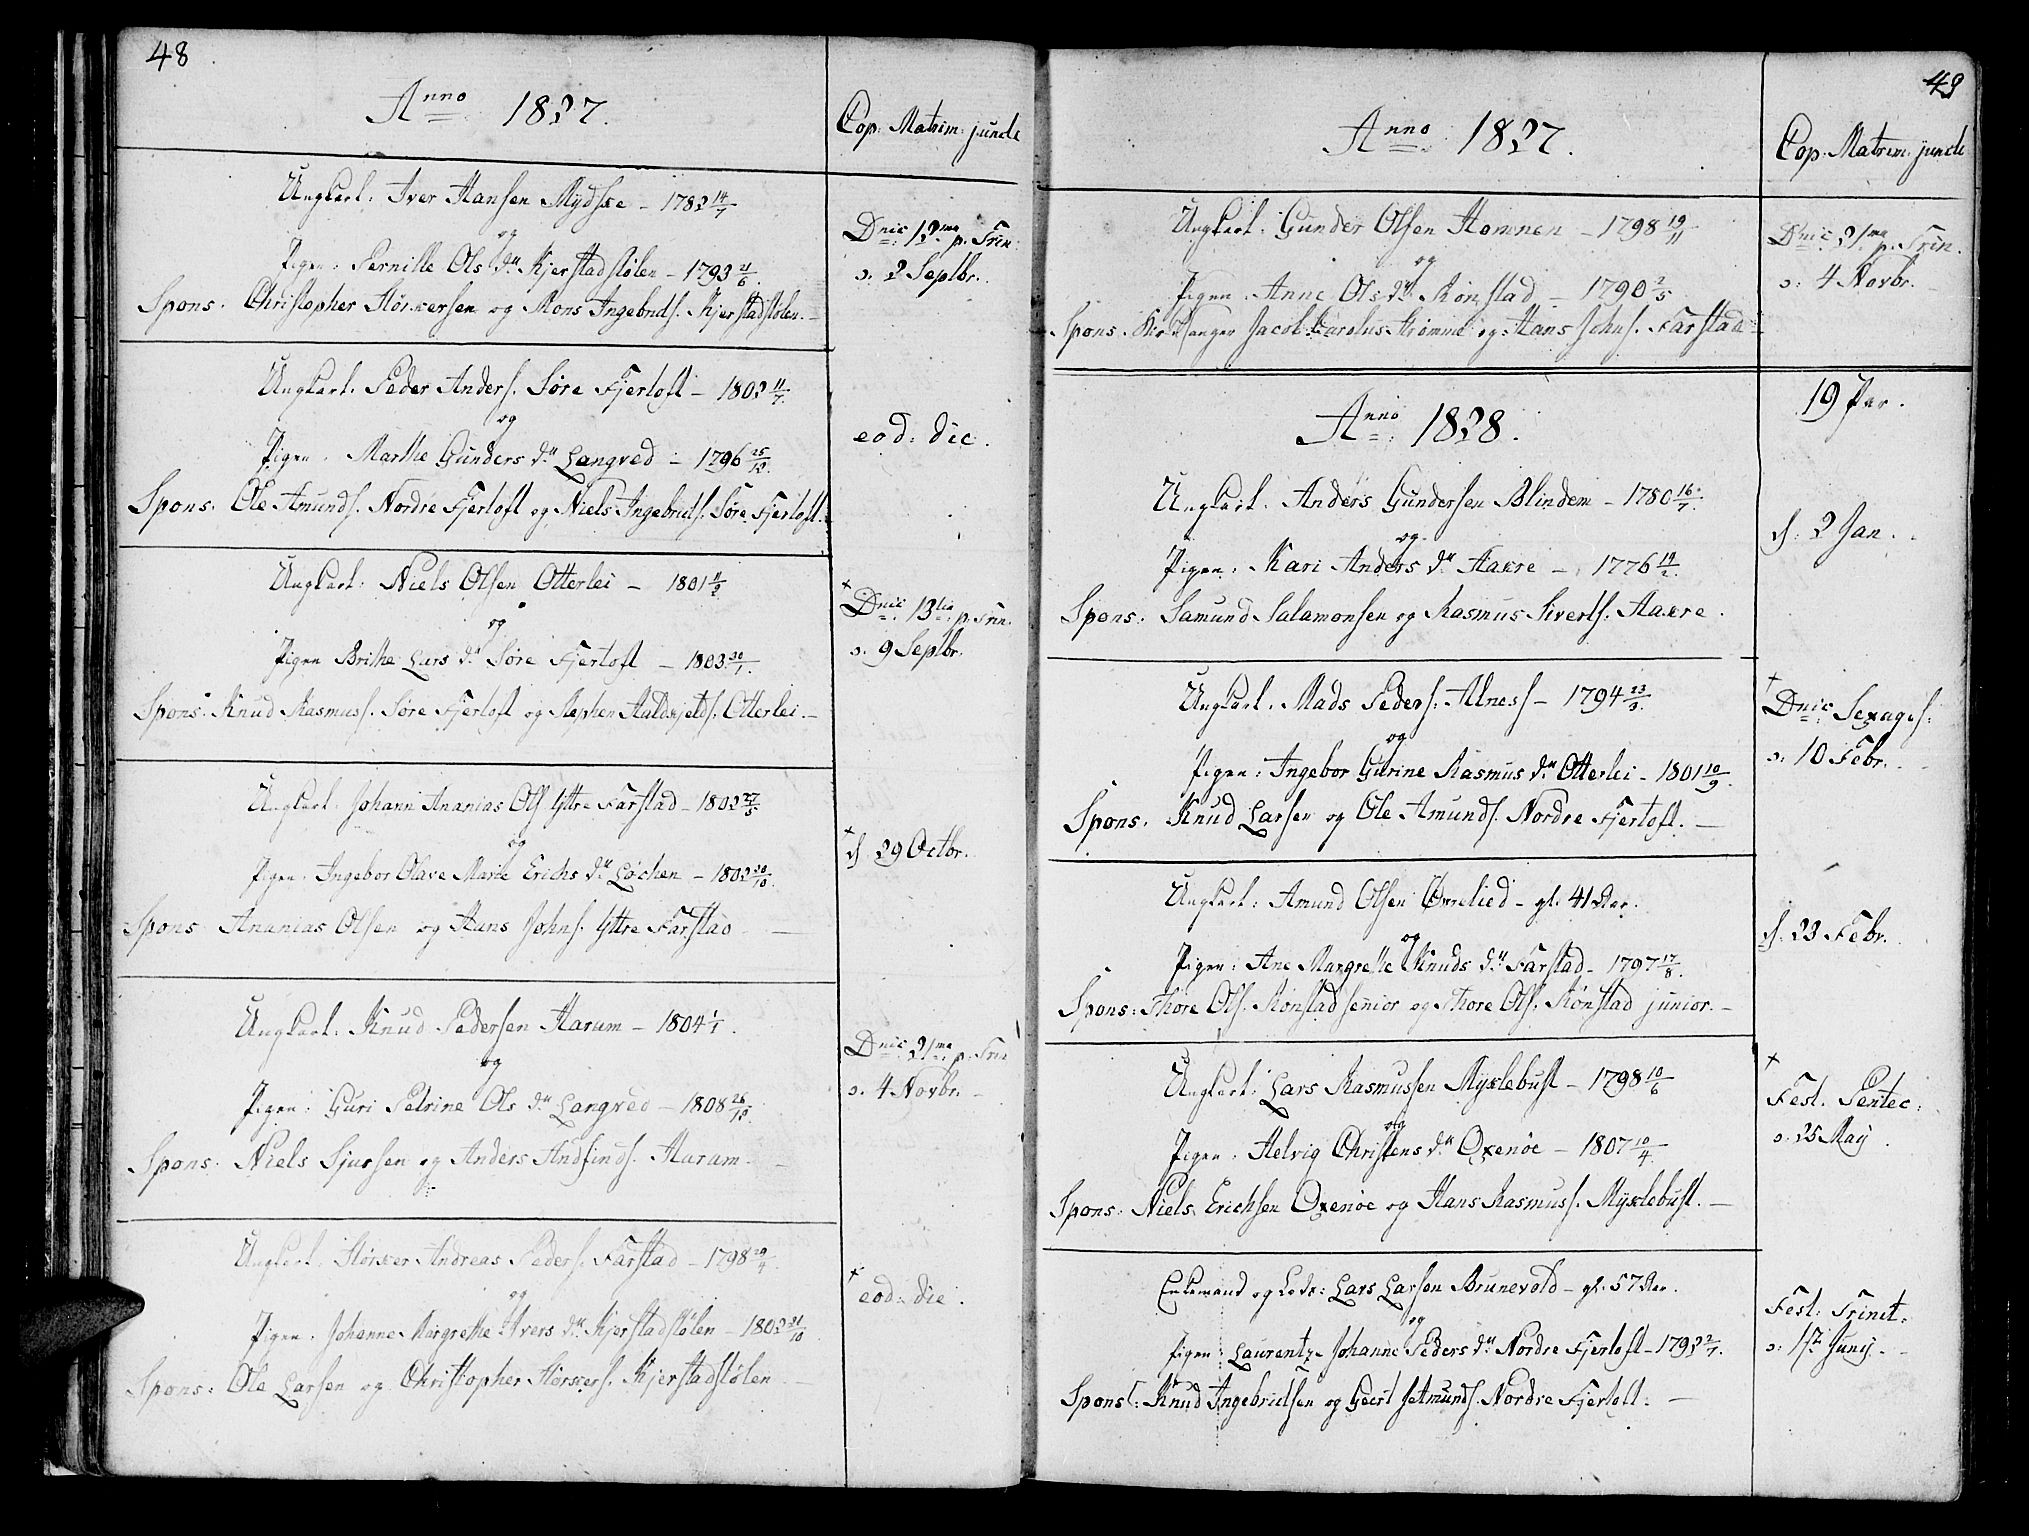 48
Anno 1827.
Cop: Matrim: juncti
Ungkarl: Iver Hansen Mydsxe - 1782 14/7
og
Pigen: Pernille Ols dr Kjerstadstølen - 1793 21/6.
Spons. Christopher Størkersen og Mons Ingebrets. Kjerstadstølen. -
Dnic: 12ma p. Trin:
ɔ: 2 Septbr.
Ungkarl. Peder Anders. Søre Fjertoft - 1802 11/7.
og
Pigen. Marthe Gunders dr Langved - 1796 25/12.
Spons. Ole Amunds. Nordre Fjertoft og Niels Ingebrits. Søre Fjertoft.
eod: die.
Ungkarl: Niels Olsen Otterlei - 1801 11/2
og
Pigen Brithe Lars dr Søre Fjertoft - 1803 30/1.
Spons: Knud Rasmus. Søre Fjertoft og Stephen Hald Otterlei. -
Dnic: 13tia p. Trin.
ɔ. 9 Septbr.
Ungkarl. Johann Ananias Ols. Yttre Farstad - 1802 27/5
og
Pigen: Ingebor Olave Marie Erichs dr Løchen - 1802 30/10.
Spons Ananias Olsen og Hans Johns. Yttre Farstad -
d 29 Octbr.
Ungkarl. Knud Pedersen Haram - 1804 1/1.
og
Pigen: Guri Petrine Ols dr Langved - 1808 26/10.
Spons: Niels Sjursen og Anders Andfinds. Haram. -
Dnic: 21ma p. Trin
ɔ. 4 Novbr. -
Ungkarl. Størker Andreas Peders. Farstad - 1798 29/4.
og
Pigen. Johanne Margrethe Ivers dr Kjerstadstølen - 1802 31/10.
Spons: Ole Larsen og Christopher Størkers. Kjerstadstølen -
eod: die.
49
Anno 1827.
Cop. Matrim: juncti
Ungkarl. Gunder Olsen Hamnen - 1798 19/11
og
Pigen. Anne Ols dr Rønstad - 1790 2/5
Spons. Kirkesanger Jacob Carolus Strømme og Hans Johns. Farstad
Dnic: 21ma p. Trin.
ɔ: 4 Novbr. -
19 Par.
Anno 1828.
Ungkarl. Anders Gundersen Blindem - 1780 16/7.
og
Pigen: Kari Anders dr Aakre - 1776 19/2.
Spons: Samund Salamonsen og Rasmus Siverts. Aakre.
d: 2 Jan.
Ungkarl. Mads Peders. Alness - 1794 23/9.
og
Pigen: Ingebor Gurine Rasmus dr Otterlei - 1801 10/9.
Spons. Knud Larsen og Ole Amunds. Nordre Fjertoft. -
Dnic: Sexages:
ɔ. 10 Febr. -
Ungkarl: Amund Olsen Øvrelied - gl. 41 Aar.
og
Pigen: Ane Margrethe Knuds dr Farstad - 1797 17/8.
Spons: Thore Ols. Rønstad senior og Thore Ols. Rønstad junior. -
d. 23 Febr.
Ungkarl: Lars Rasmussen Myklebust - 1798 10/6
og
Pigen: Helvig Christens dr Oxenøe - 1807 10/4.
Spons: Niels Erichsen Oxenøe og Hans Rasmuss. Myklebust. -
Fest. Pentec:
ɔ. 25 May.
Enkemand og Lods: Lars Larsen Brunevold - gl: 57 Aar.
og
Pigen: Laurentze Johanne Peders dr Nordre Fjertoft - 1792 2/7.
Spons: Knud Ingebritsen og Geert Amunds. Nordre Fjertoft. -
Fest: Trinit:
ɔ. 1te Juny. -